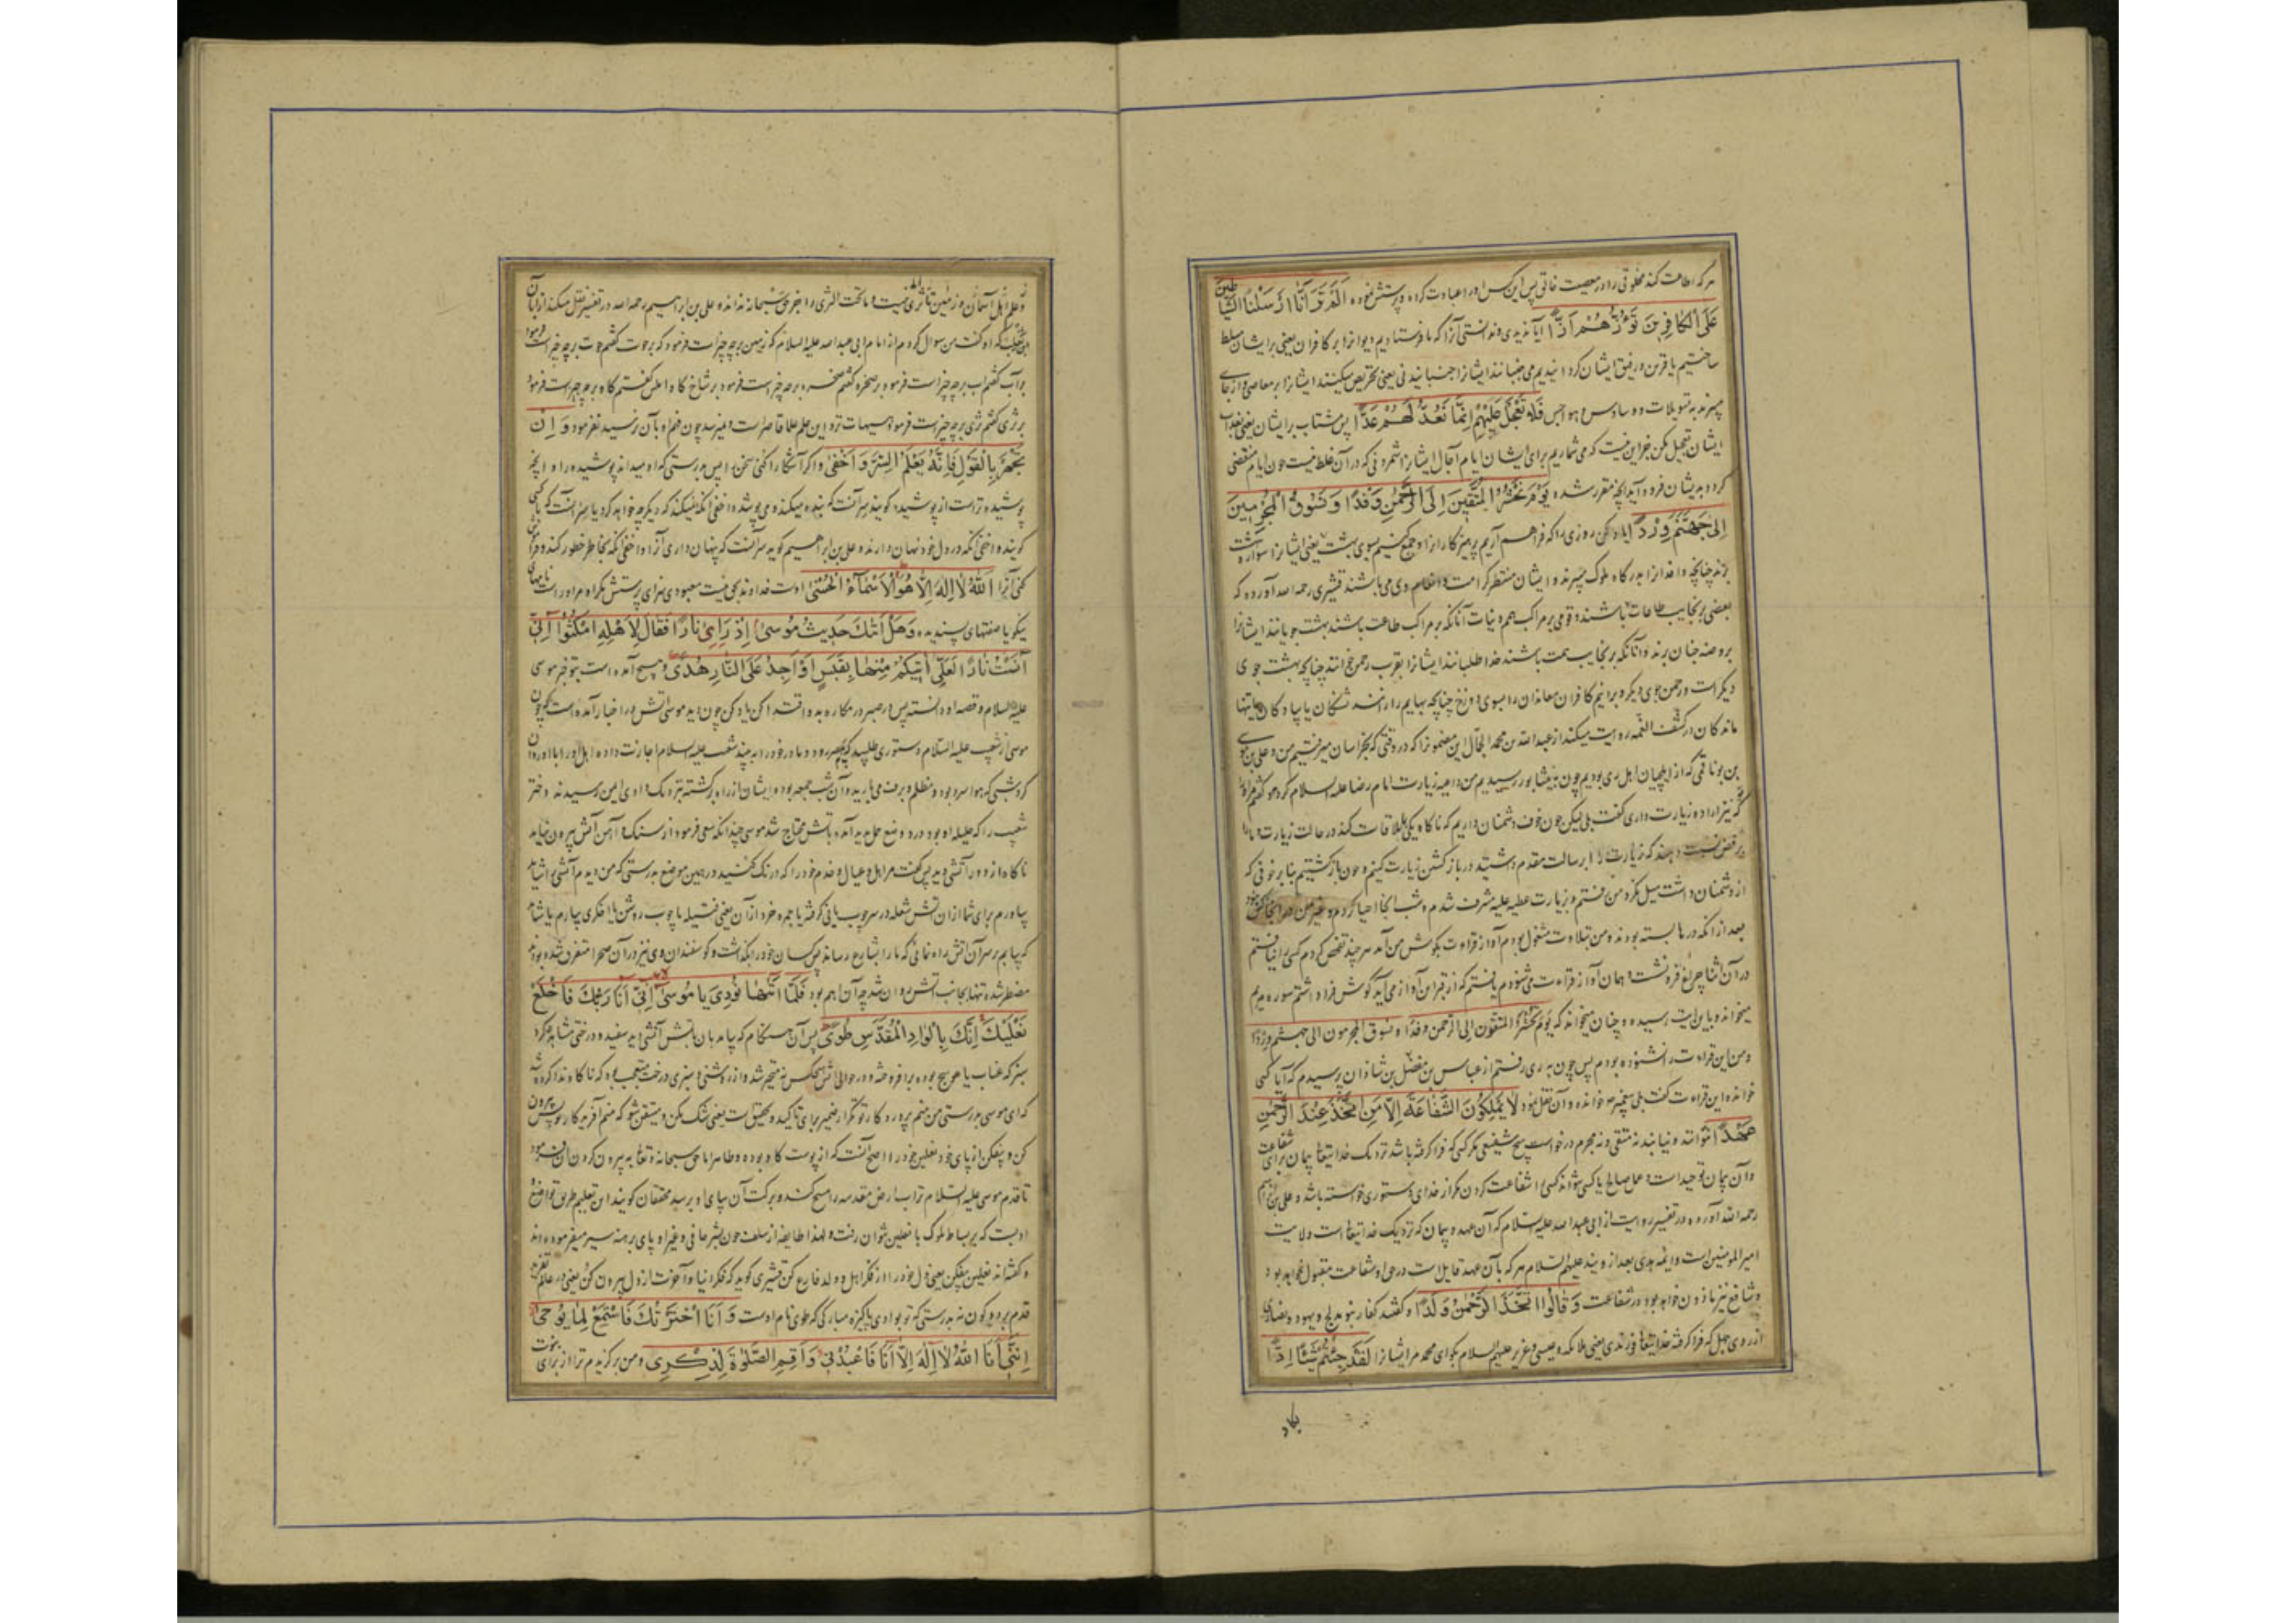 هر که اطاعت کند مخلوقی را در معصیت خالق پس این کس او را عبادت کرده و پرستش نموده اَلَمْ تَرَ اَنَّا اَرْسَلْنَا الشَّیاطینَ
عَلَی الْکافِرینَ تَؤُزُّهُمْ اَزًّا آیا ندیدی و ندانستی آنرا که ما فرستادیم دیوانرا بر کافران یعنی بر ایشان مسلط
ساختیم یا قرین و رفیق ایشان گردانیدیم می جنبانند ایشانرا جنبانیدنی یعنی تحریص میکنند ایشانرا بر معاصی و از جای
میبرند به تسویلات و وساوس و هواجس فَلا تَعْجَلْ عَلَیْهِمْ اِنَّما نَعُدُّ لَهُمْ عَدًّا پس مشتاب بر ایشان یعنی بعذاب
ایشان تعجیل مکن جز این نیست که می شماریم برای ایشان ایام آجال ایشانرا شمردنی که در آن غلط نیست چون ایام منقضی
کردد بدیشان فرود آید آنچه مقرر شده یَوْمَ نَحْشُرُ الْمُتَّقینَ اِلَی الرَّحْمنِ وَفْدًا وَ نَسُوقُ الْمُجْرِمینَ
اِلی جَهَنَّمَ وِرْدًا یاد کن روزی را که فراهم آریم پرهیزکارانرا و جمع کنیم بسوی بهشت یعنی ایشانرا سواره به بهشت
برند چنانچه وافدانرا بدرکاه ملوک میبرند و ایشان منتظر کرامت و انعام وی می باشند قشیری رحمه الله آورده که
بعضی بر نجایب طاعات باشند و قومی بر مراکب همم و نیات آنانکه بر مراکب طاعت باشند بهشت جویانند ایشانرا
بروضه جنان برند و آنانکه بر نجایب همت باشند خدا طلبانند ایشانرا بقرب رحمن خوانند چنانچه بهشت جوی
دیگر است و رحمن جوی دیگر و برانیم کافران معاندان را بسوی دوزخ چنانچه بهایم را رانند تشنکان یا پیادکان
ماندکان در کشف الغمه روایت میکند از عبدالله بن محمد الجمال این مضمونرا که در وقتی که بخراسان میرفتیم من و علی بن
که از ایلچیان اهل ری بودیم چون به نیشابور رسیدیم من داعیه زیارت امام رضا علیه السلام کردم و گفتم
نیز اراده زیارت داری گفت بلی لیکن چون خوف دشمنان داریم که ناکاه یکی ملاقات کند در حالت زیارت و ما را
برفض نسبت دهند که زیارت را بر رسالت مقدم داشتید در بازگشتن زیارت کنیم و چون بازگشتیم بنابر خوفی که
از دشمنان داشت میل نکرد من رفتم و بزیارت عطیه علیه مشرف شدم و شب آنجا احیا کردم و غیر من در آنجا کسی نبود
بعد از آنکه درها بسته بودند و من بتلاوت مشغول بودم آواز قراءت بگوش من آمد هر چند تفحص کردم کسی را نیافتم
در آن اثنا چراغ فرو نشست و همان آواز قراءت می شنودم یافتم که از قبر این آواز می آید گوش فرا داشتم سوره مریم
میخواند و باین آیت رسیده و چنان میخواند که یوم یحشر المتقون الی الرحمن وفدا و یسوق المجرمون الی جهنم وردا
و من این قراءت را نشنوده بودم پس چون به ری رفتم از عباس بن فضل بن شاذان پرسیدم که آیا کسی
خوانده این قراءت گفت بلی پیغمبر خوانده و آن نقل نمود لا یَمْلِکُونَ الشَّفاعَةَ اِلّا مَنِ اتَّخَذَ عِنْدَ الرَّحْمنِ
عَهْدًا نتوانند و نیابند نه متقی و نه مجرم درخواست هیچ شفیعی مگر کسی که فرا گرفته باشد نزدیک خدایتعالی پیمان برای شفاعت
و آن پیمان توحید است و عمل صالح یا کسی نتواند کسی را شفاعت کردن مگر از خدای دستوری خواسته باشد و علی بن ابراهیم
رحمه الله آورده در تفسیر روایت از ابی عبدالله علیه السلام که آن عهد و پیمان که نزدیک خدایتعالی است ولایت
امیرالمومنین است و ایمه هدی بعد از ویند علیهم السلام هر که بآن عهد قایل است در حق او شفاعت مقبول خواهد بود
و شافع نیز ماذون خواهد بود در شفاعت وَ قالُوا اتَّخَذَ الرَّحْمنُ وَلَدًا و گفتند کفار بنو ملیح و یهود و نصاری
از روی جهل که فرا گرفته خدایتعالی فرزندی یعنی ملائکه و عیسی و عزیر علیهم السلام بگو ای محمد مر ایشانرا لَقَدْ جِئْتُمْ شَیْئًا اِدًّا
و علم اهل آسمان و زمین تا ثری نیست و ما تحت الثری را جز حق سبحانه نداند و علی بن ابراهیم رحمه الله در تفسیر نقل میکند از ابان
بن تغلب که او گفت من سوال کردم از امام ابی عبدالله علیه السلام که زمین بر چه چیز است فرمود که بر حوت گفتم حوت بر چه چیز است فرمود
بر آب گفتم آب بر چه چیز است فرمود بر صخره گفتم صخره بر چه چیز است فرمود بر شاخ کاو املس گفتم کاو بر چه چیز است فرمود
بر ثری گفتم ثری بر چه چیز است فرمود هیهات نزد این علم علما قاصر است و نمیرسد چون فهم او بآن نرسید نفرمود وَ اِنْ
تَجْهَرْ بِالْقَوْلِ فَاِنَّهُ یَعْلَمُ السِّرَّ وَ اَخْفی و اگر آشکارا کنی سخن را پس بدرستی که او میداند پوشیده را و آنچه
پوشیده تر است از پوشیده گویند سر آنست که بنده میکند و می پوشد و اخفی آنکه نمیکند که دیگر چه خواهد کرد یا سر آنست که با کسی
گویند و اخفی آنکه در دل خود نهان دارند و علی بن ابراهیم گوید سر آنست که پنهان داری آنرا و اخفی آنکه بخاطر خطور کند و فراموش
کنی آنرا اَللّهُ لا اِلهَ اِلّا هُوَ لَهُ الْاَسْماءُ الْحُسْنی اوست خداوند بحق نیست معبودی سزای پرستش مگر او مر او راست نامهای
نیکو یا صفتهای پسندیده وَ هَلْ اَتیکَ حَدیثُ مُوسی اِذْ رَای نارًا فَقالَ لِاَهْلِهِ امْکُثُوا اِنّی
آنَسْتُ نارًا لَعَلّی اتیکُمْ مِنْها بِقَبَسٍ اَوْ اَجِدُ عَلَی النّارِ هُدًی و هیچ آمده است بتو خبر موسی
علیه السلام و قصه او دانسته پس در صبر در مکاره بدو اقتدا کن یاد کن چون دید موسی آتش در اخبار آمده است که چون
موسی از شعیب علیه السلام دستوری طلبید که بمصر رود و مادر خود را ببیند شعیب علیه السلام اجازت داده اهل او را با او روان
کرد شبی که هوا سرد بود و مظلم و برف می بارید و آن شب جمعه بود و ایشان از راه برگشته نزدیک وادی ایمن رسیدند و دختر
شعیب را که حلیله او بود درد وضع حمل پدید آمد و بآتش محتاج شد موسی چندانکه سعی فرمود از سنک و آهن آتش بیرون نیامد
ناکاه از دور آتشی دید پس گفت مر اهل و عیال و خدم خود را که درنک کنید در همین موضع بدرستی که من دیدم آتشی را شاید
بیاورم برای شما از آن آتش شعله در سر چوب یا نی گرفته یا جمره خرد از آن یعنی فتیله یا چوب روشن یا اخکری بیارم یا شاید
که بیابم بر سر آن آتش راه نمائی که ما را بشارع رساند پس کسان خود را بگذاشت و گوسفندان وی نیز در آن صحرا متفرق شده بودند
مضطر شده تنها بجانب آتش روان شد چه آن اهم بود فَلَمّا اَتیها نُودِیَ یا مُوسی اِنّی اَنَا رَبُّکَ فَاخْلَعْ
نَعْلَیْکَ اِنَّکَ بِالْوادِ الْمُقَدَّسِ طُوًی پس آن هنکام که بیامد بآن آتش آتشی دید سفید و درختی مشاهده کرد
سبز که عناب یا عوسج بوده برافروخته و در حوالی آتش هیچکس نه متحیر شد و از روشنی و سبزی درخت متعجب بود که ناکاه ندا کرده شد
که ای موسی بدرستی من منم پروردکار تو تکرار ضمیر برای تاکید و تحقیق است یعنی شک مکن و متیقن شو که منم آفریدکار تو پس بیرون
کن و بیفکن از پای خود نعلین خود را اصح آنست که از پوست کاو بوده و طاهر اما حق سبحانه و تعالی به بیرون کردن آن فرمود
تا قدم موسی علیه السلام تراب ارض مقدسه را مسح کند و برکت آن بپای او برسد محققان گویند این تعلیم طریق تواضع و
ادبست که بر بساط ملوک با نعلین نتوان رفت و لهذا طایفه از سلف چون بشر حافی و غیر او پای برهنه سیر میفرموده اند
و گفته اند نعلین بیفکن یعنی دل خود را از فکر اهل و ولد فارغ کن قشیری گوید که فکر دنیا و آخرت از دل بیرون کن یعنی در عالم تفرید
قدم بر دو کون نه بدرستی که تو بوادی پاکیزه مبارکی که طوی نام اوست وَ اَنَا اخْتَرْتُکَ فَاسْتَمِعْ لِما یُوحی
اِنَّنی اَنَا اللّهُ لا اِلهَ اِلّا اَنَا فَاعْبُدْنی وَ اَقِمِ الصَّلوةَ لِذِکْری و من برگزیدم ترا از برای نبوت